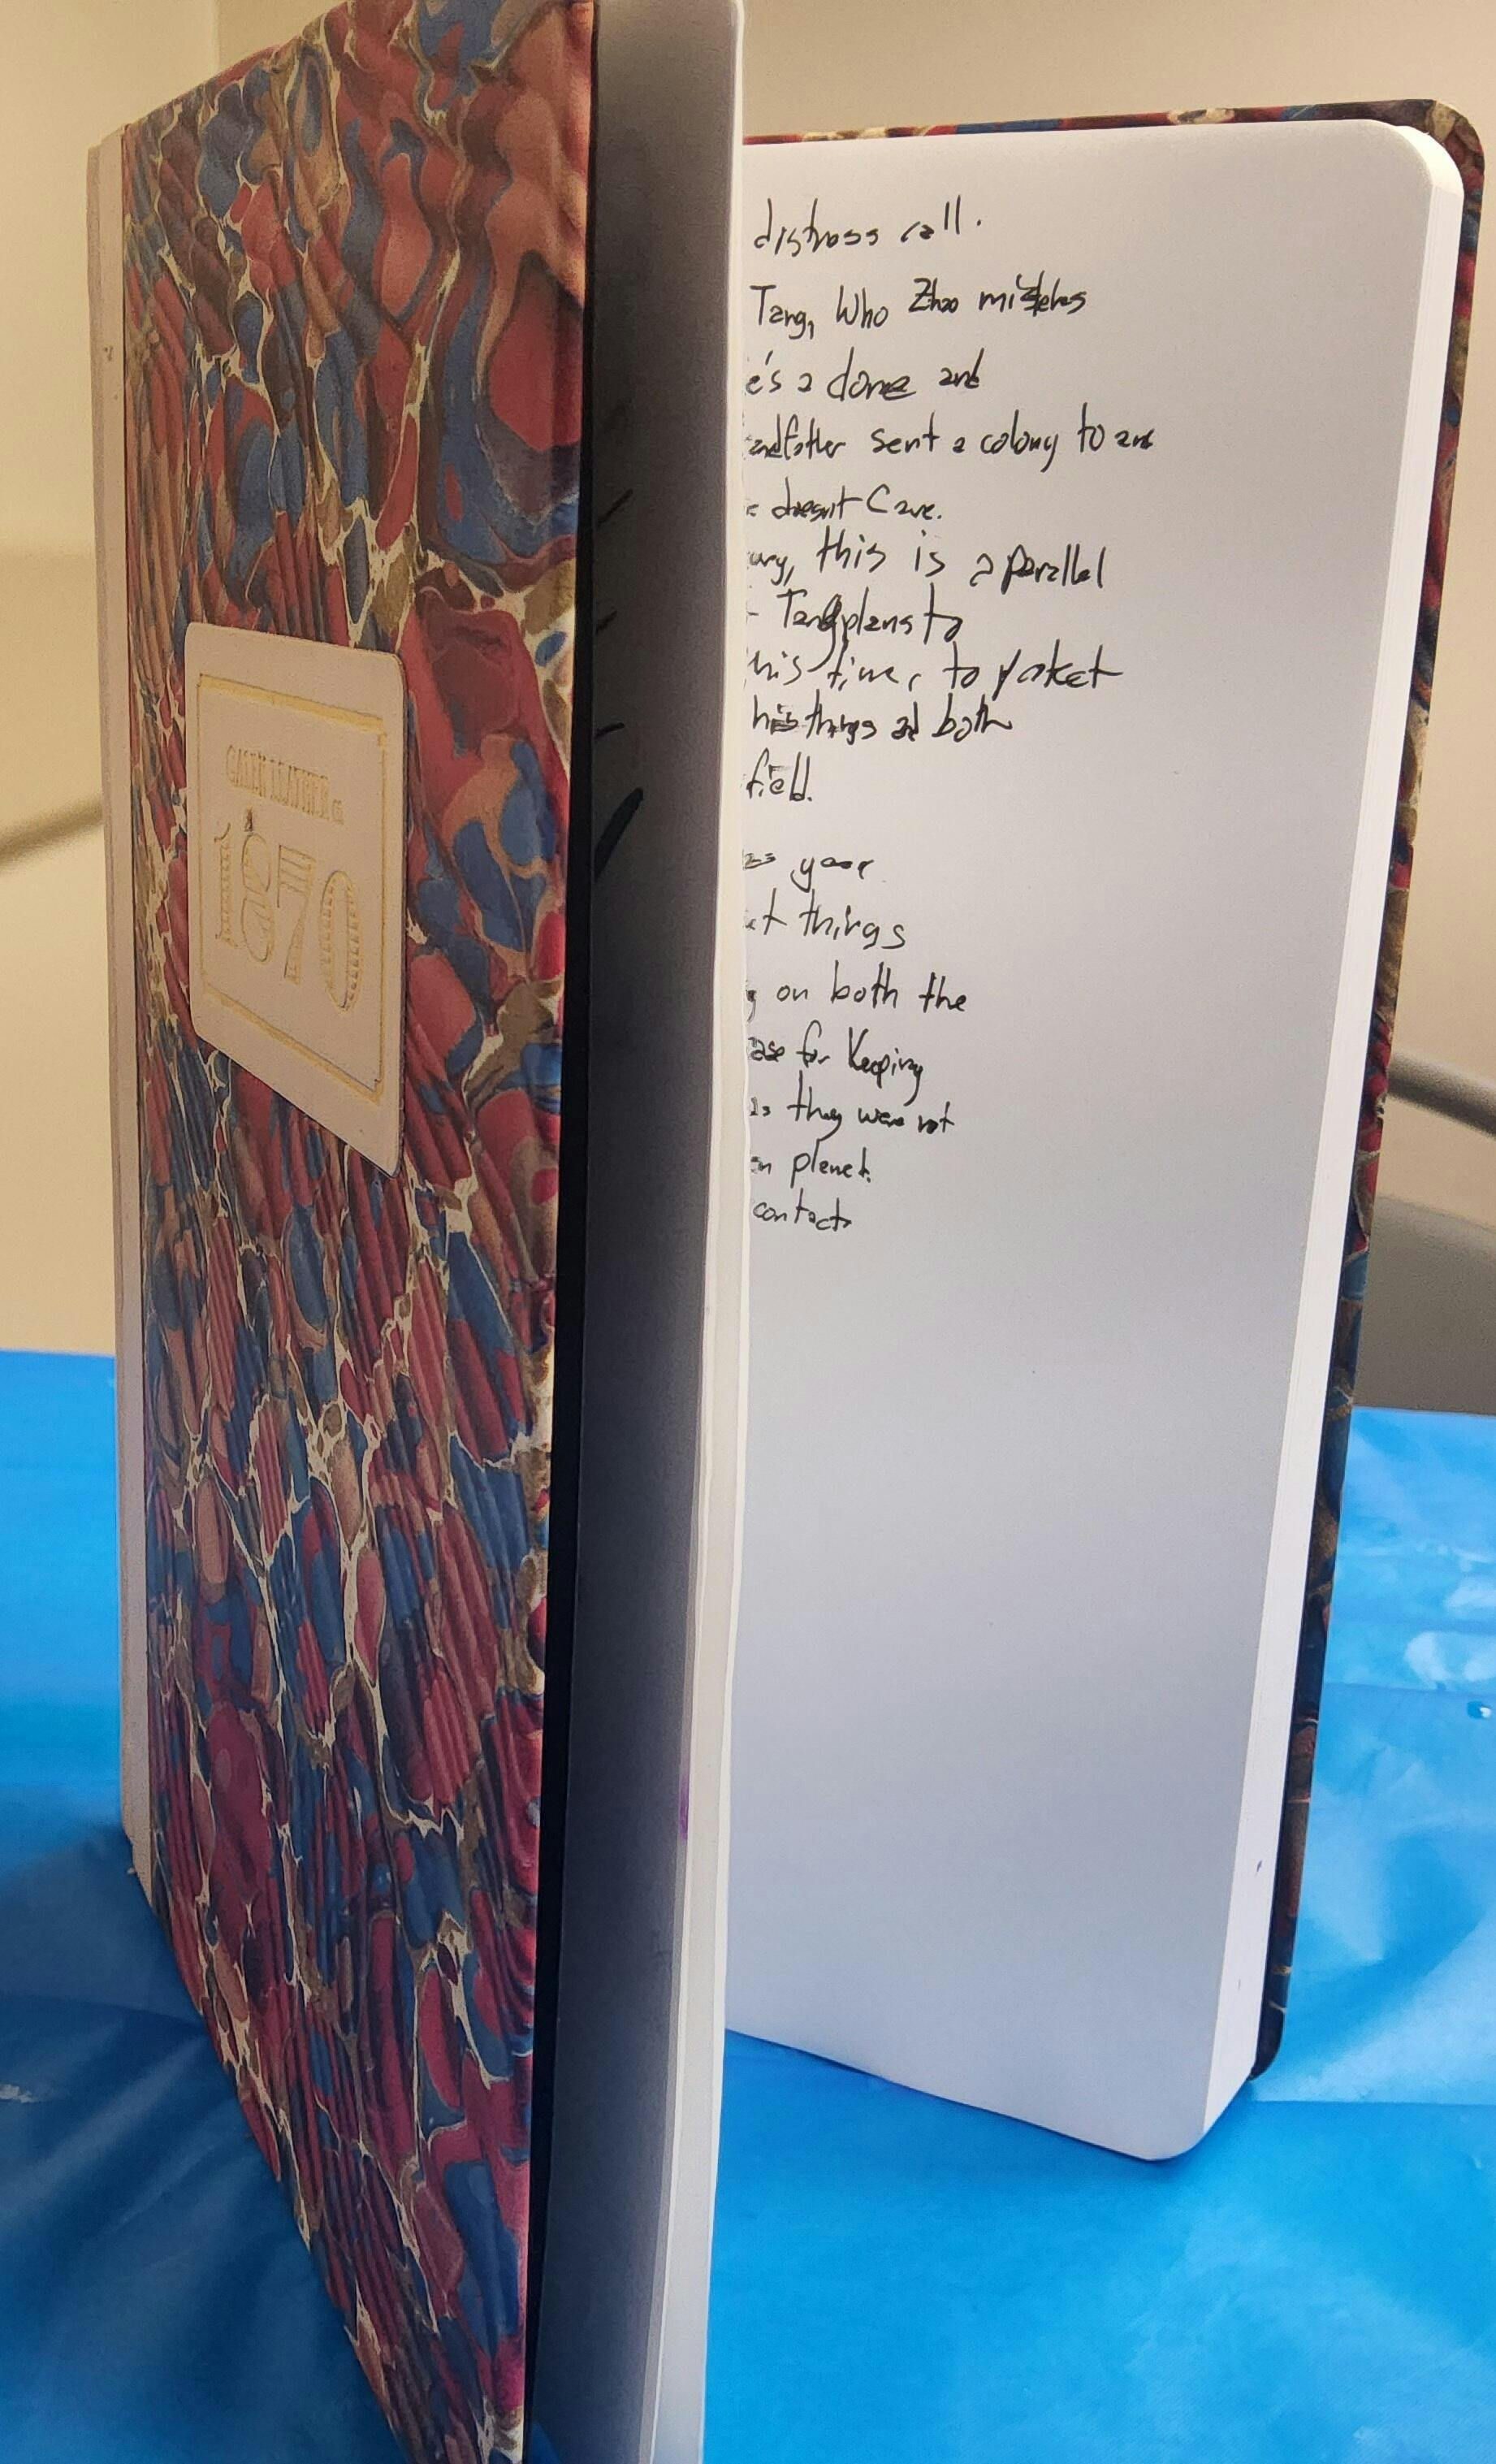 GALEN LEATHER co
1870
distress call.
Tang, Who Zhao mistakes
e's a clone and
andfather sent a colony to
doesn't Care.
this is a parallel
Tang plans to
his time, to
his things and both
field.
year
things
on both the
ase for Keeping
they were not
planet.
contact